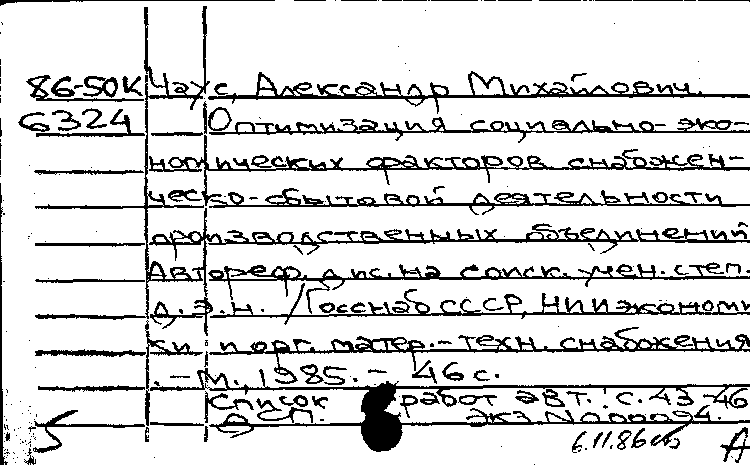 86-50К Чаус, Александр Михайлович.
6324 Оптимизация социально-эко-
номических факторов снабжен-
ческо-сбытовой деятельности
производственных объединений
Автореф. дис. на соиск. учен. степ.
д.э.н. /Госснаб СССР, НИИ экономи
ки и орг. матер.-техн. снабжения
.-М., 1985.- 46 с.
Список работ авт.: с.43-46
ДСП. экз.N 000094.
6.11.86